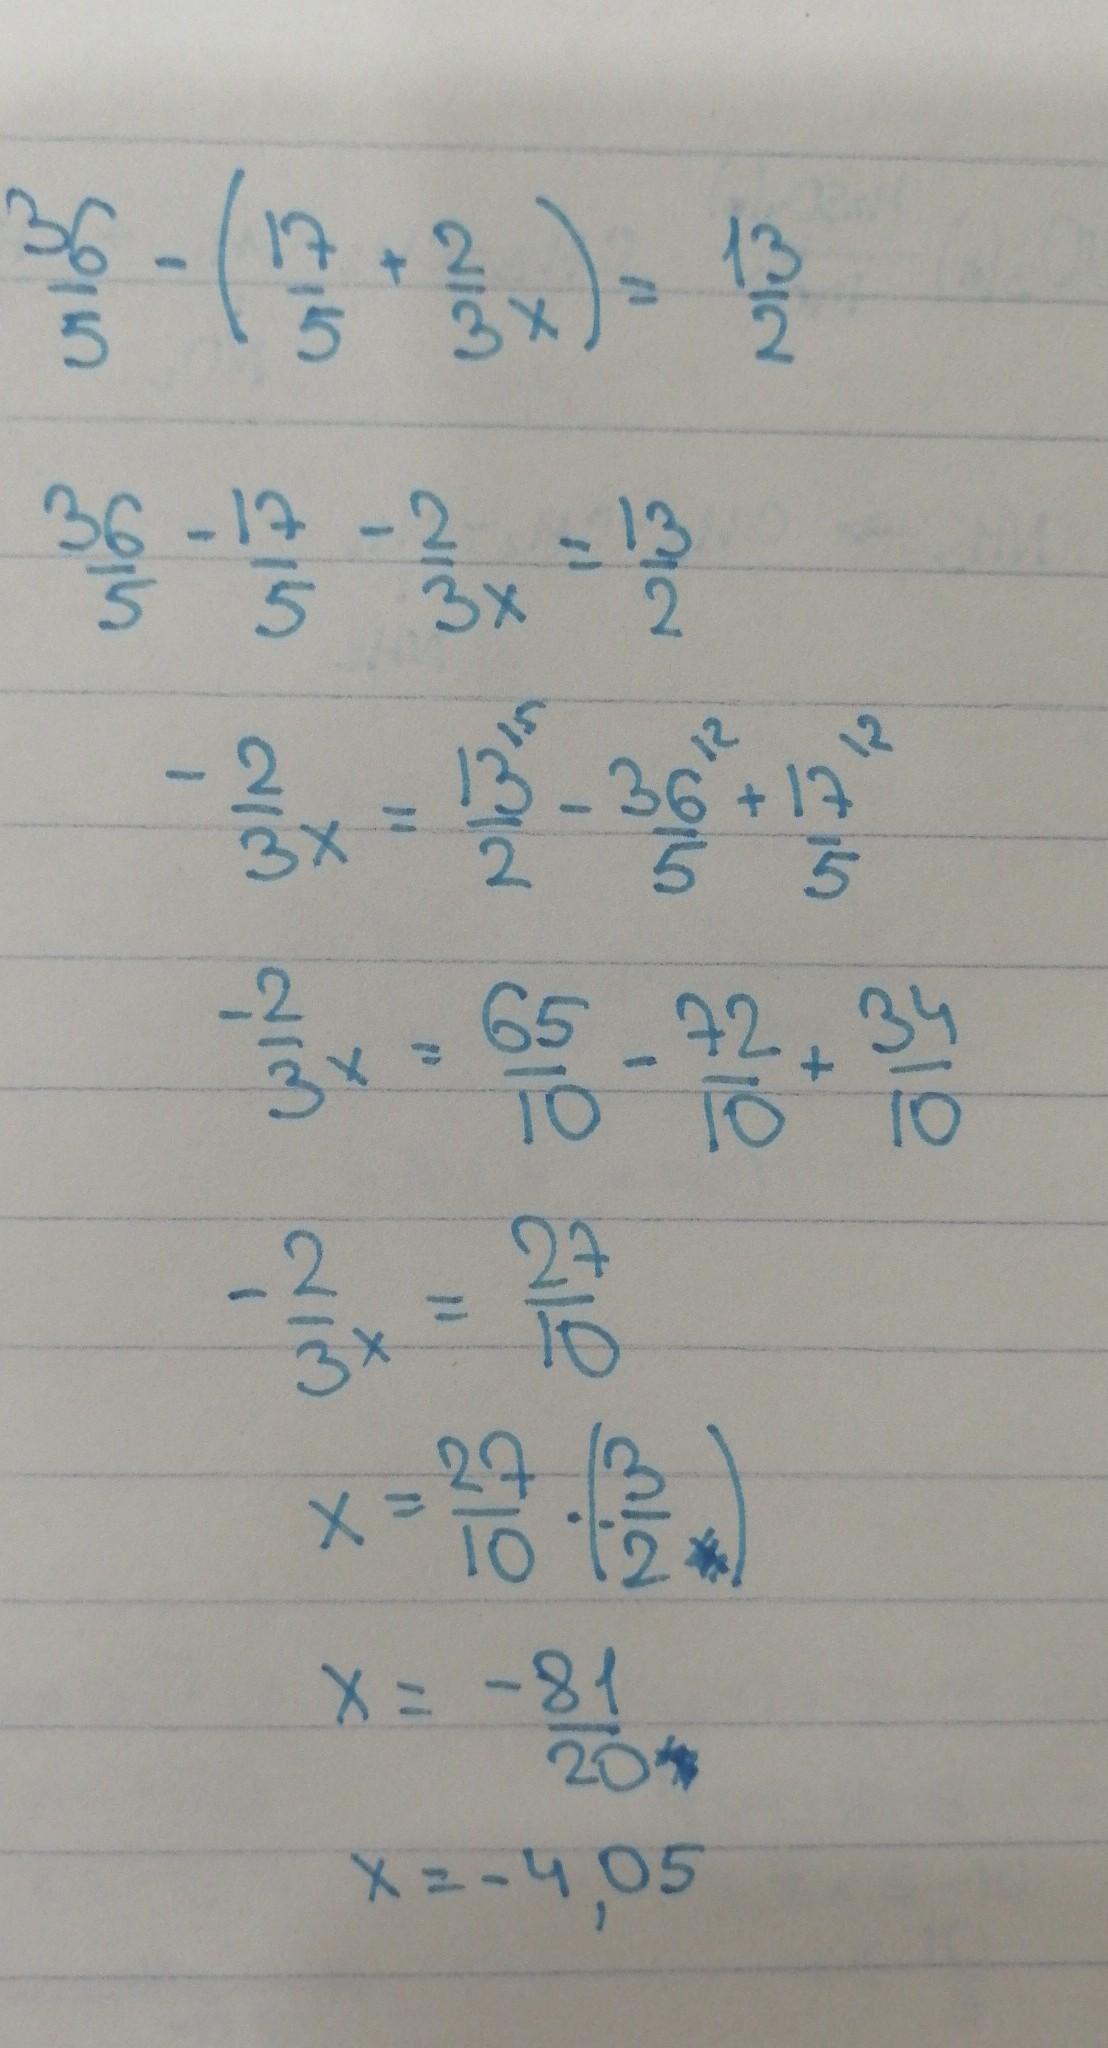 36/5 - (17/5 + 2/3 x) = 13/2
36/5 - 17/5 - 2/3 x = 13/2
- 2/3 x = 13/2 |5 - 36/5 |2 + 17/5 |2
- 2/3 x = 65/10 - 72/10 + 34/10
- 2/3 x = 27/10
x = 27/10 · (- 3/2)
x = - 81/20
x = - 4,05